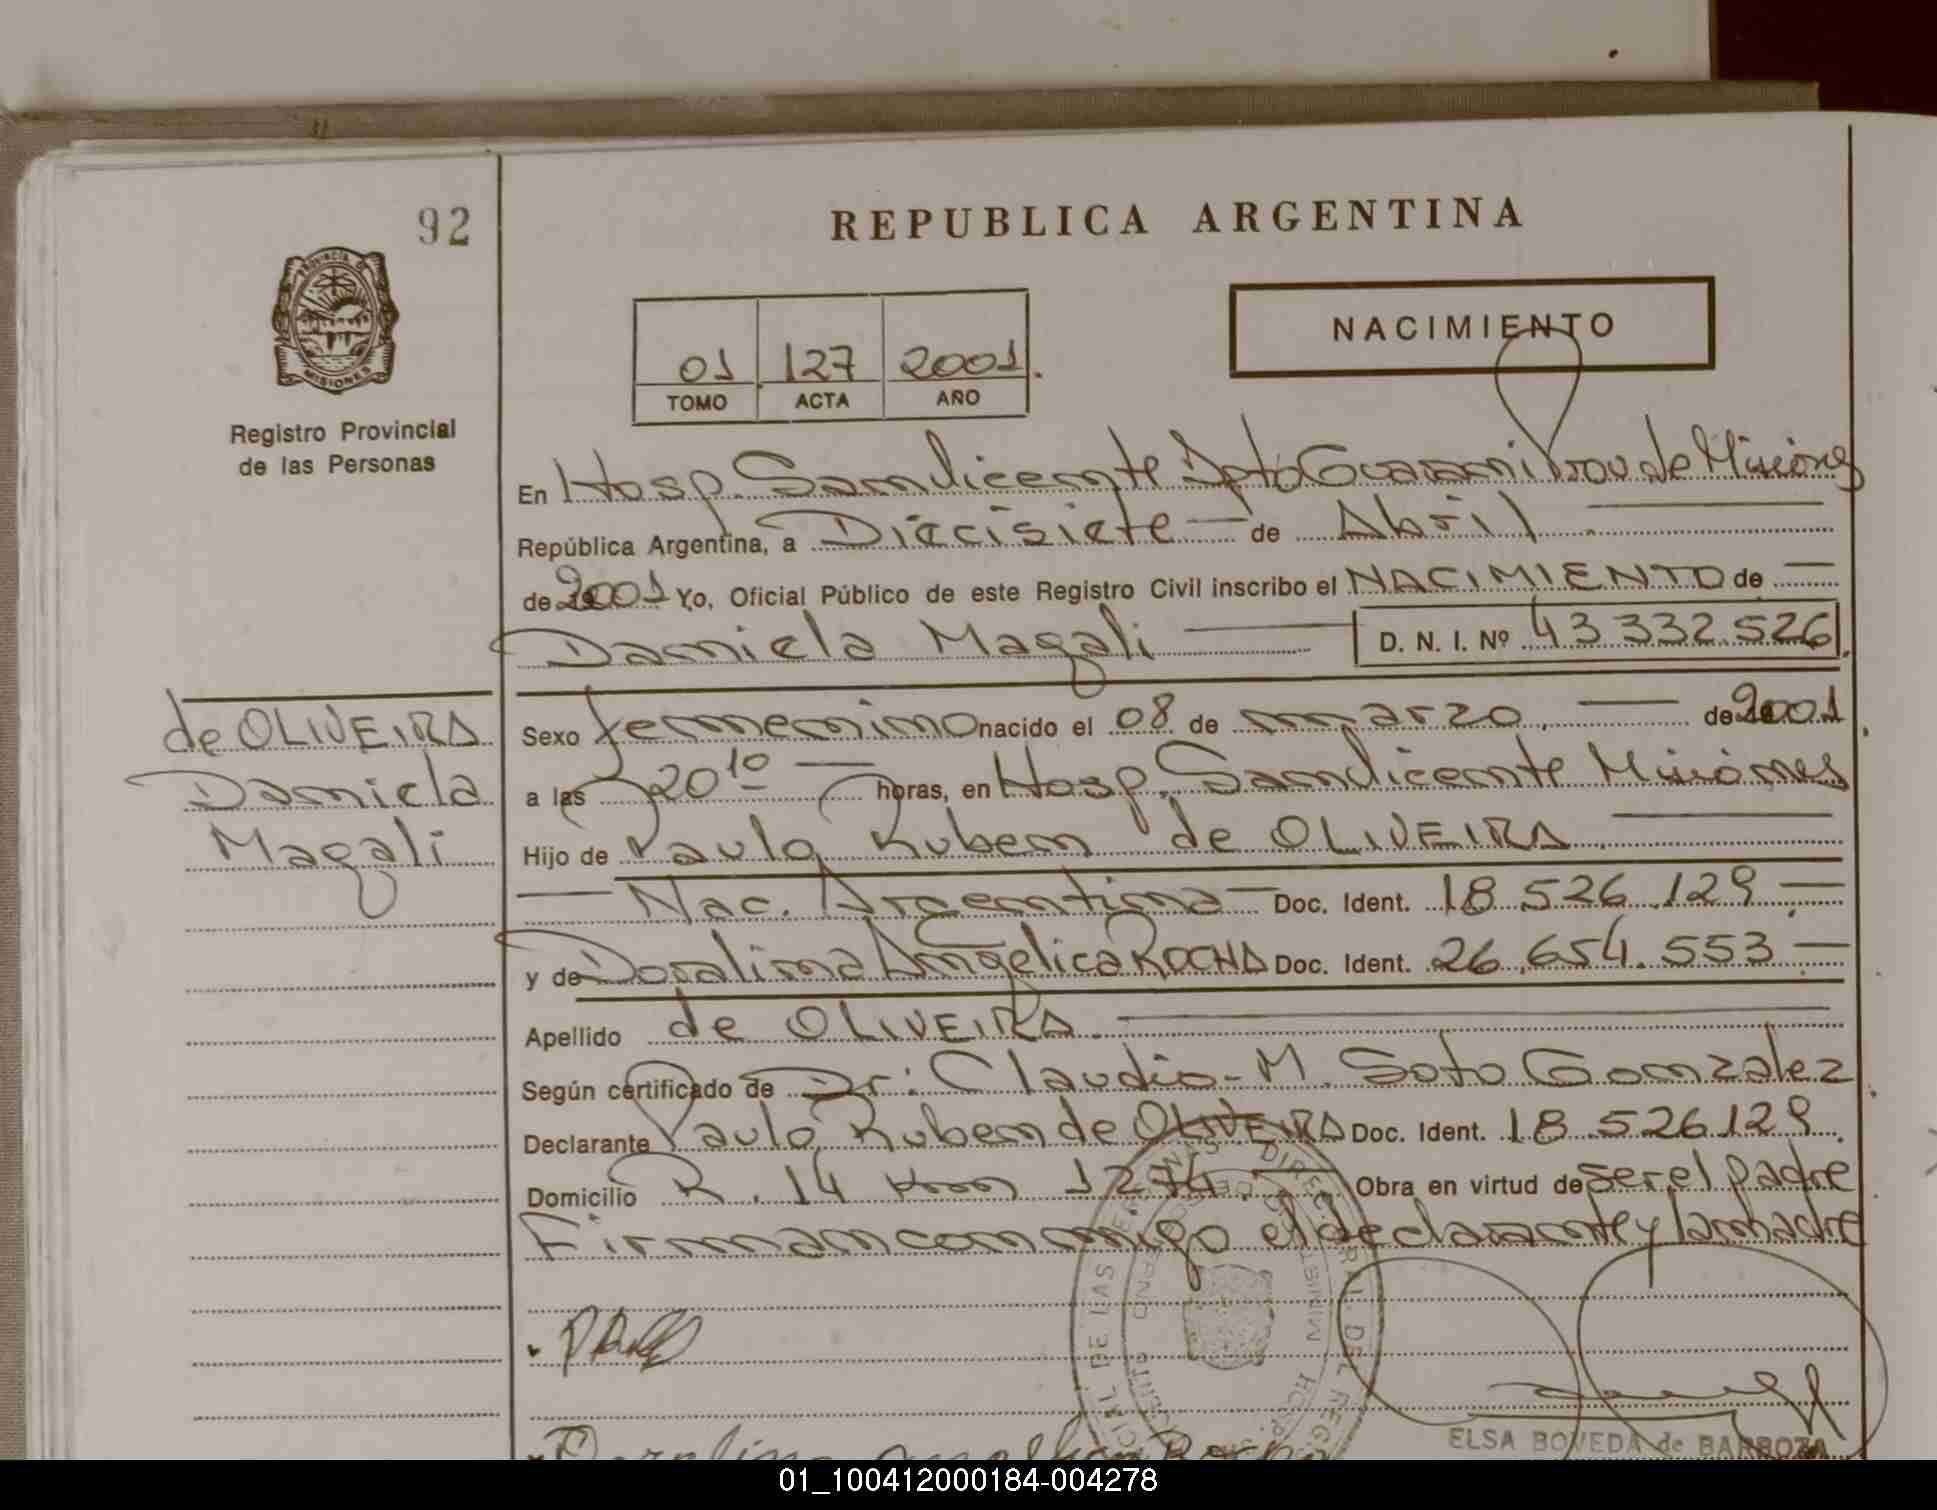 92
REPUBLICA ARGENTINA
PROVINCIA D
MISIONES
Registro Provincial
de las Personas
01 127 2001
TOMO ACTA AÑO
NACIMIENTO
En Hosp. Samdicente Dpto Guarani Prov de Misiones
República Argentina, a Diecisiete de Abril
de 2001 Yo, Oficial Público de este Registro Civil inscribo el NACIMIENTO de
Daniela Magali D. N. I. Nº 43 332 526
de OLIVEIRA
Daniela
Magali
Sexo femenino nacido el 08 de marzo de 2001
a las 20 10 horas, en Hosp. Samdicente Misiones
Hijo de Paulo Ruben de OLIVEIRA
Nac. Argentina Doc. Ident. 18.526.129
y de Doralina Angelica ROCHA Doc. Ident. 26.654.553
Apellido de OLIVEIRA
Según certificado de Dr: Claudio M. Soto Gonzalez
Declarante Paulo Ruben de OLIVEIRA Doc. Ident. 18.526.129
Domicilio R. 14 Km 1274 Obra en virtud de ser el padre
Firman conmigo el declarante y la madre
ELSA BOVEDA de BARBOZA
01_100412000184-004278